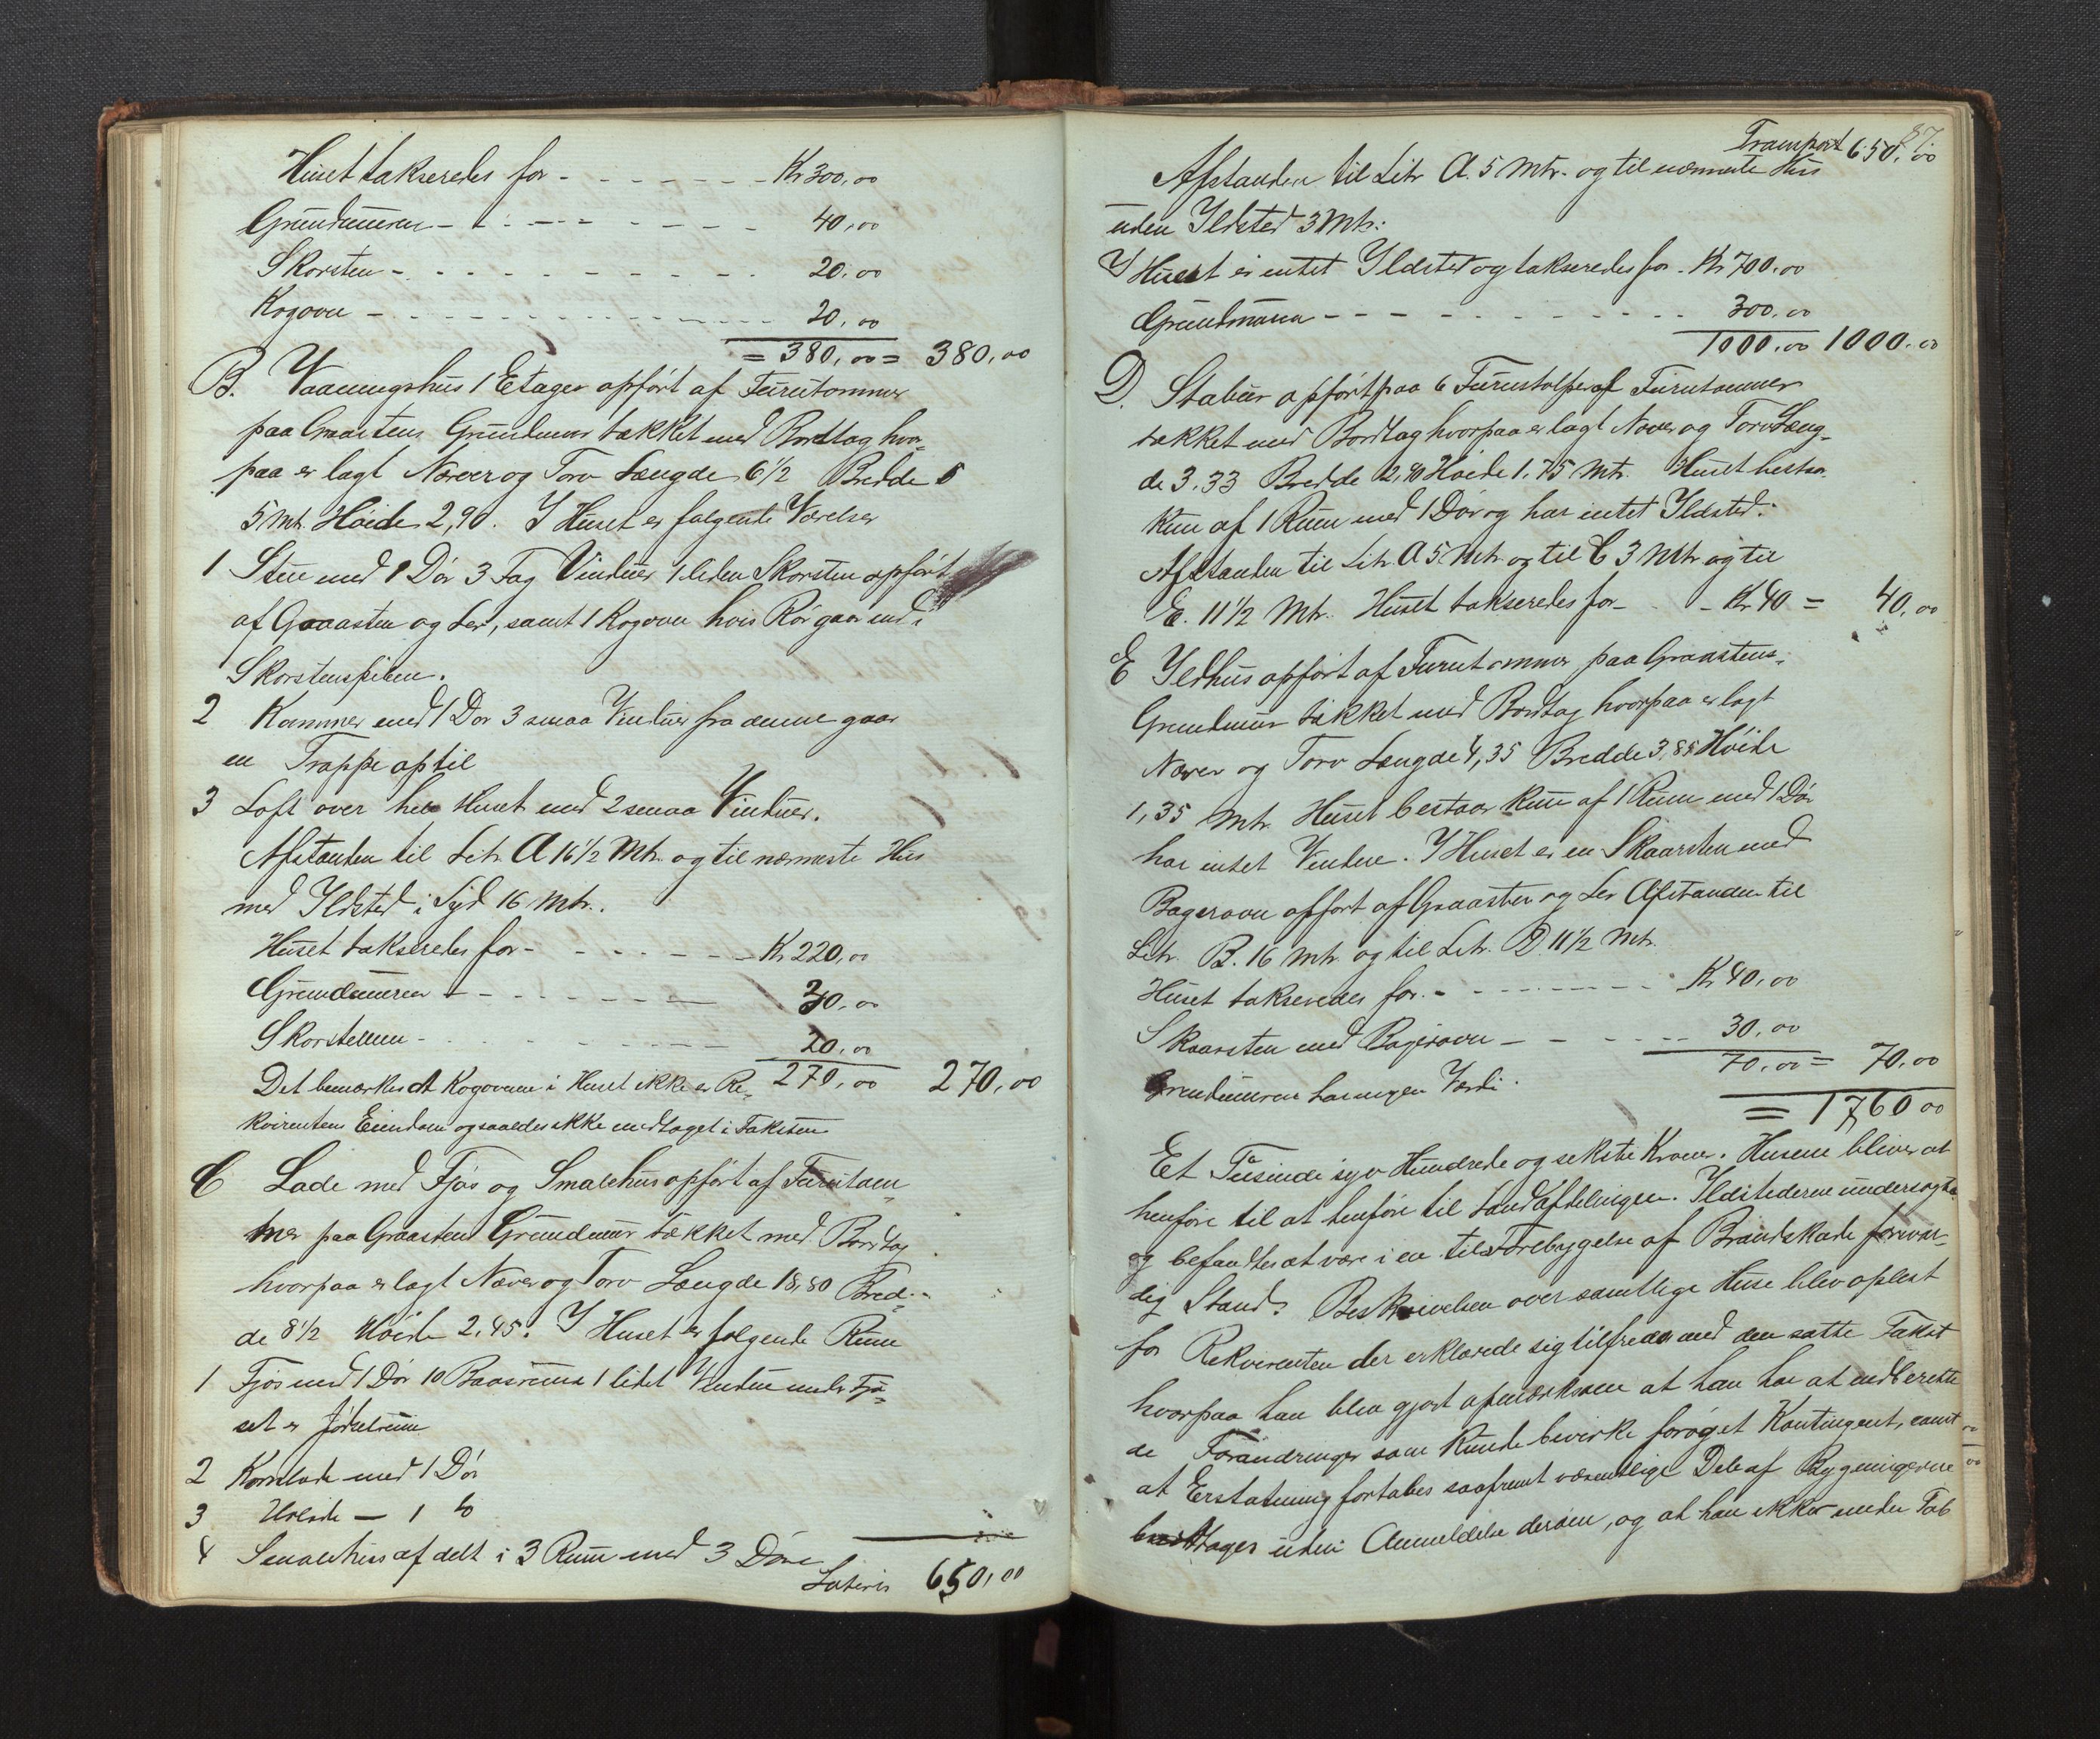 Huset takseredes for - - - - - - - Kr 300,00
Grundmuren - - - - - - - - 40,00
Skorsten - - - - - - - - - 20,00
Kogovn - - - - - - - - - - 20,00
= 380,00 = 380,00
B. Vaaningshus 1 Etages opført af Furutømmer
paa Graastens Grundmur tækket med Bordtag hvor-
paa er lagt Næver og Torv Længde 6 1/2 Bredde
5 Mtr. Høide 2,90. I Huset er følgende Værelser
1 Stue med 1 Dør 3 Fag Vinduer 1 liden Skorsten opført
af Graasten og Ler, samt 1 Kogovn hvis Rør gaar ind i
Skorstenspiben.
2 Kammer med 1 Dør 3 smaa Vinduer fra denne gaar
en Trappe op til
3 Loft over hele Huset med 2 smaa Vinduer.
Afstanden til Litr. A 16 1/2 Mtr. og til nærmeste Hus
med Ildsted i Syd 16 Mtr.
Huset takseredes for - - - - - - Kr 220,00
Grundmuren - - - - - - - - 30,00
Skorstenen - - - - - - - - 20,00
Det bemærkes at Kogovnen i Huset ikke er Re- 270,00 270,00
kvirentens Eiendom og saaledes ikke medtaget i Taksten
C Lade med Fjøs og Smalehus opført af Furutøm-
mer paa Graastens Grundmur tækket med Bordtag
hvorpaa er lagt Næver og Torv Længde 18,80 Bred-
de 8 1/2 Høide 2,45. I Huset er følgende Rum
1 Fjøs med 1 Dør 10 Baasrum 1 lidet Vindue under Fjø-
set er Gjødselrum
2 Kornlade med 1 Dør
3 Hølade — 1 do
4 Smalehus afdelt i 3 Rum med 3 Døre
Lateris 650,00
87.
Transport 650,00
Afstanden til Litr A. 5 Mtr. og til nærmeste Hus
uden Ildsted 3 Mtr.
I Huset er intet Ildsted og takseredes for - Kr 700,00
Grundmuren - - - - - - - - - - - 300,00
1000,00 1000,00
D. Stabur opført paa 6 Furustolper af Furutømmer
tækket med Bordtag hvorpaa er lagt Næver og Torv Læng-
de 3,33 Bredde 2,80 Høide 1,75 Mtr. Huset bestaar
kun af 1 Rum med 1 Dør og har intet Ildsted.
Afstanden til Litr A 5 Mtr og til C 3 Mtr og til
E. 11 1/2 Mtr. Huset takseredes for - - Kr 40 = 40,00
E Ildhus opført af Furutømmer paa Graastens
Grundmur tækket med Bordtag hvorpaa er lagt
Næver og Torv Længde 4,35 Bredde 3,85 Høide
1,35 Mtr. Huset bestaar kun af 1 Rum med 1 Dør
har intet Vindue. I Huset er en Skaarsten med
Bagerovn opført af Graasten og Ler Afstanden til
Litr. B. 16 Mtr og til Litr. D. 11 1/2 Mtr.
Huset takseredes for. - - - - - - - Kr 40,00
Skaarsten med Bagerovn - - - - - 30,00
70,00 = 70,00
Grundmuren har ingen Værdi.
= 1760 00
Et Tusinde syv Hundrede og sekste Kroner. Husene bliver at
henføre til at henføre til Landafdelingen. Ildstederne undersøgtes
og befandtes at være i en til Forebygelse af Brandskade forsvar-
lig Stand. Beskrivelsen over samtlige Huse blev oplæst
for Rekvirenten der erklærede sig tilfreds med den satte Takst
hvorpaa han blev gjort opmærksom at han har at indberette
de Forandringer som kunde bevirke forøget Kontingent, samt
at Erstatning fortabes saafremt væsentlige Dele af Bygningerne
borttages uden Anmeldelse derom, og at han ikke under Tab